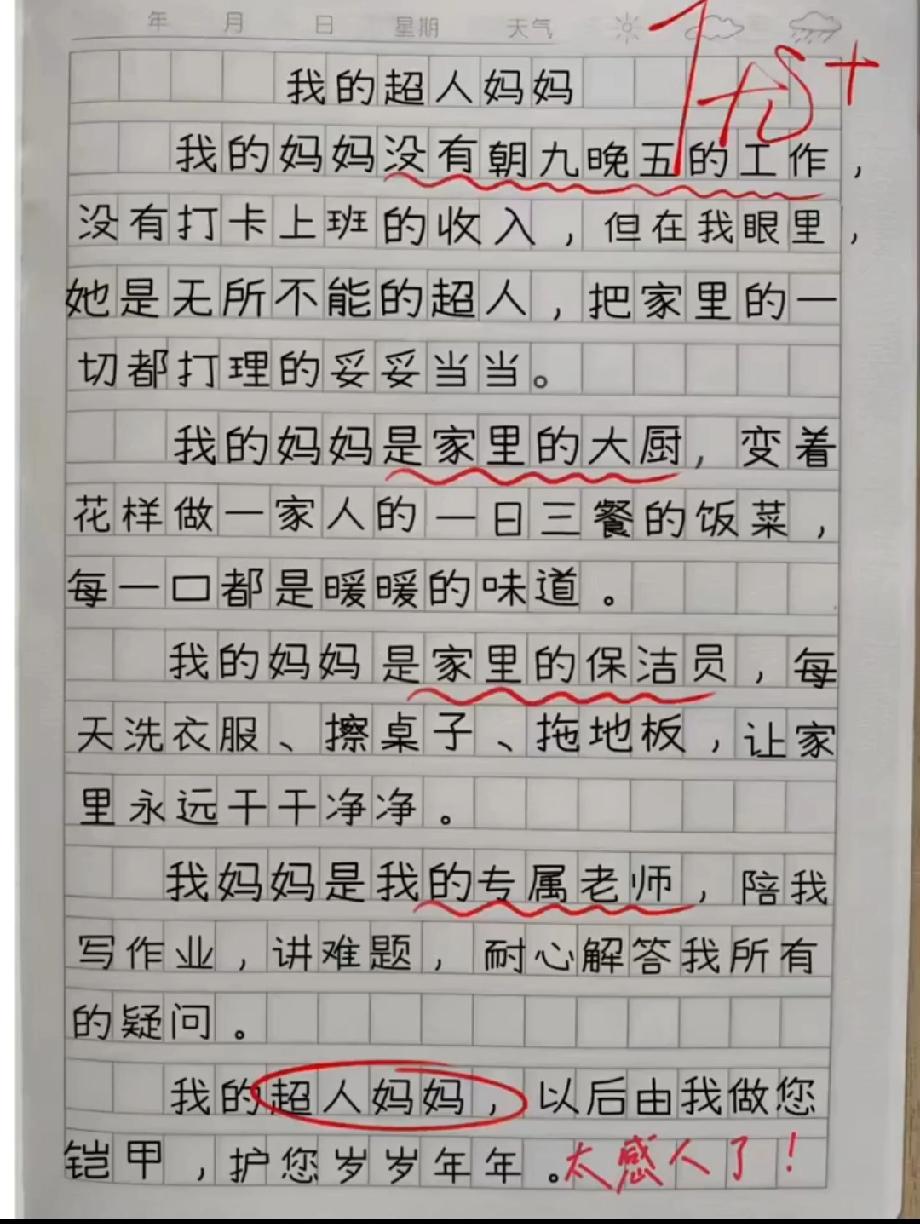 年 月 日 星期 天气
优+
我的超人妈妈
我的妈妈没有朝九晚五的工作，
没有打卡上班的收入，但在我眼里，
她是无所不能的超人，把家里的一
切都打理的妥妥当当。
我的妈妈是家里的大厨，变着
花样做一家人的一日三餐的饭菜，
每一口都是暖暖的味道。
我的妈妈是家里的保洁员，每
天洗衣服、擦桌子、拖地板，让家
里永远干干净净。
我妈妈是我的专属老师，陪我
写作业，讲难题，耐心解答我所有
的疑问。
我的超人妈妈，以后由我做您
铠甲，护您岁岁年年。太感人了！